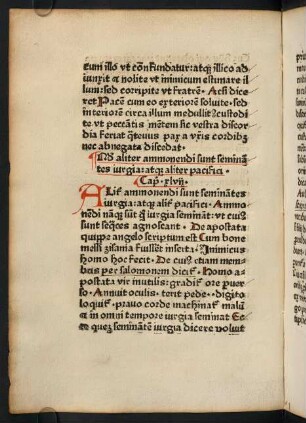 cum illo ut confundatur: atq; illico ad
iunxit et nolite ut inimicum estimare il
lum: sed corripite ut fratrem. Acsi dice
ret Pacem cum eo exteriorem soluite. sed
interiorem circa illum medullitus custodi
te. ut peccantis mentem sic vestra discor
dia feriat quatenus pax a vestris cordibus
nec abnegata discedat.
aliter ammonendi sunt seminan
tes iurgia: atq; aliter pacifici.
Cap. xlvij.
Aliter ammonendi sunt seminantes
iurgia: atq; aliter pacifici. Ammo
nendi namq; sunt qui iurgia seminant: ut cuius
sunt sequaces agnoscant. De apostata
quippe angelo scriptum est Cum bone
messi zizania fuissent inserta. Inimicus
homo hoc fecit. De cuius etiam mem
bis per salomonem dicitur. Homo a
postata vir inutilis: graditur ore puer
so. Annuit oculis. terit pede. digito
loquitur. prauo corde machinatur malum
et in omni tempore iurgia seminat Ec
ce quem seminantem iurgia dicere voluit